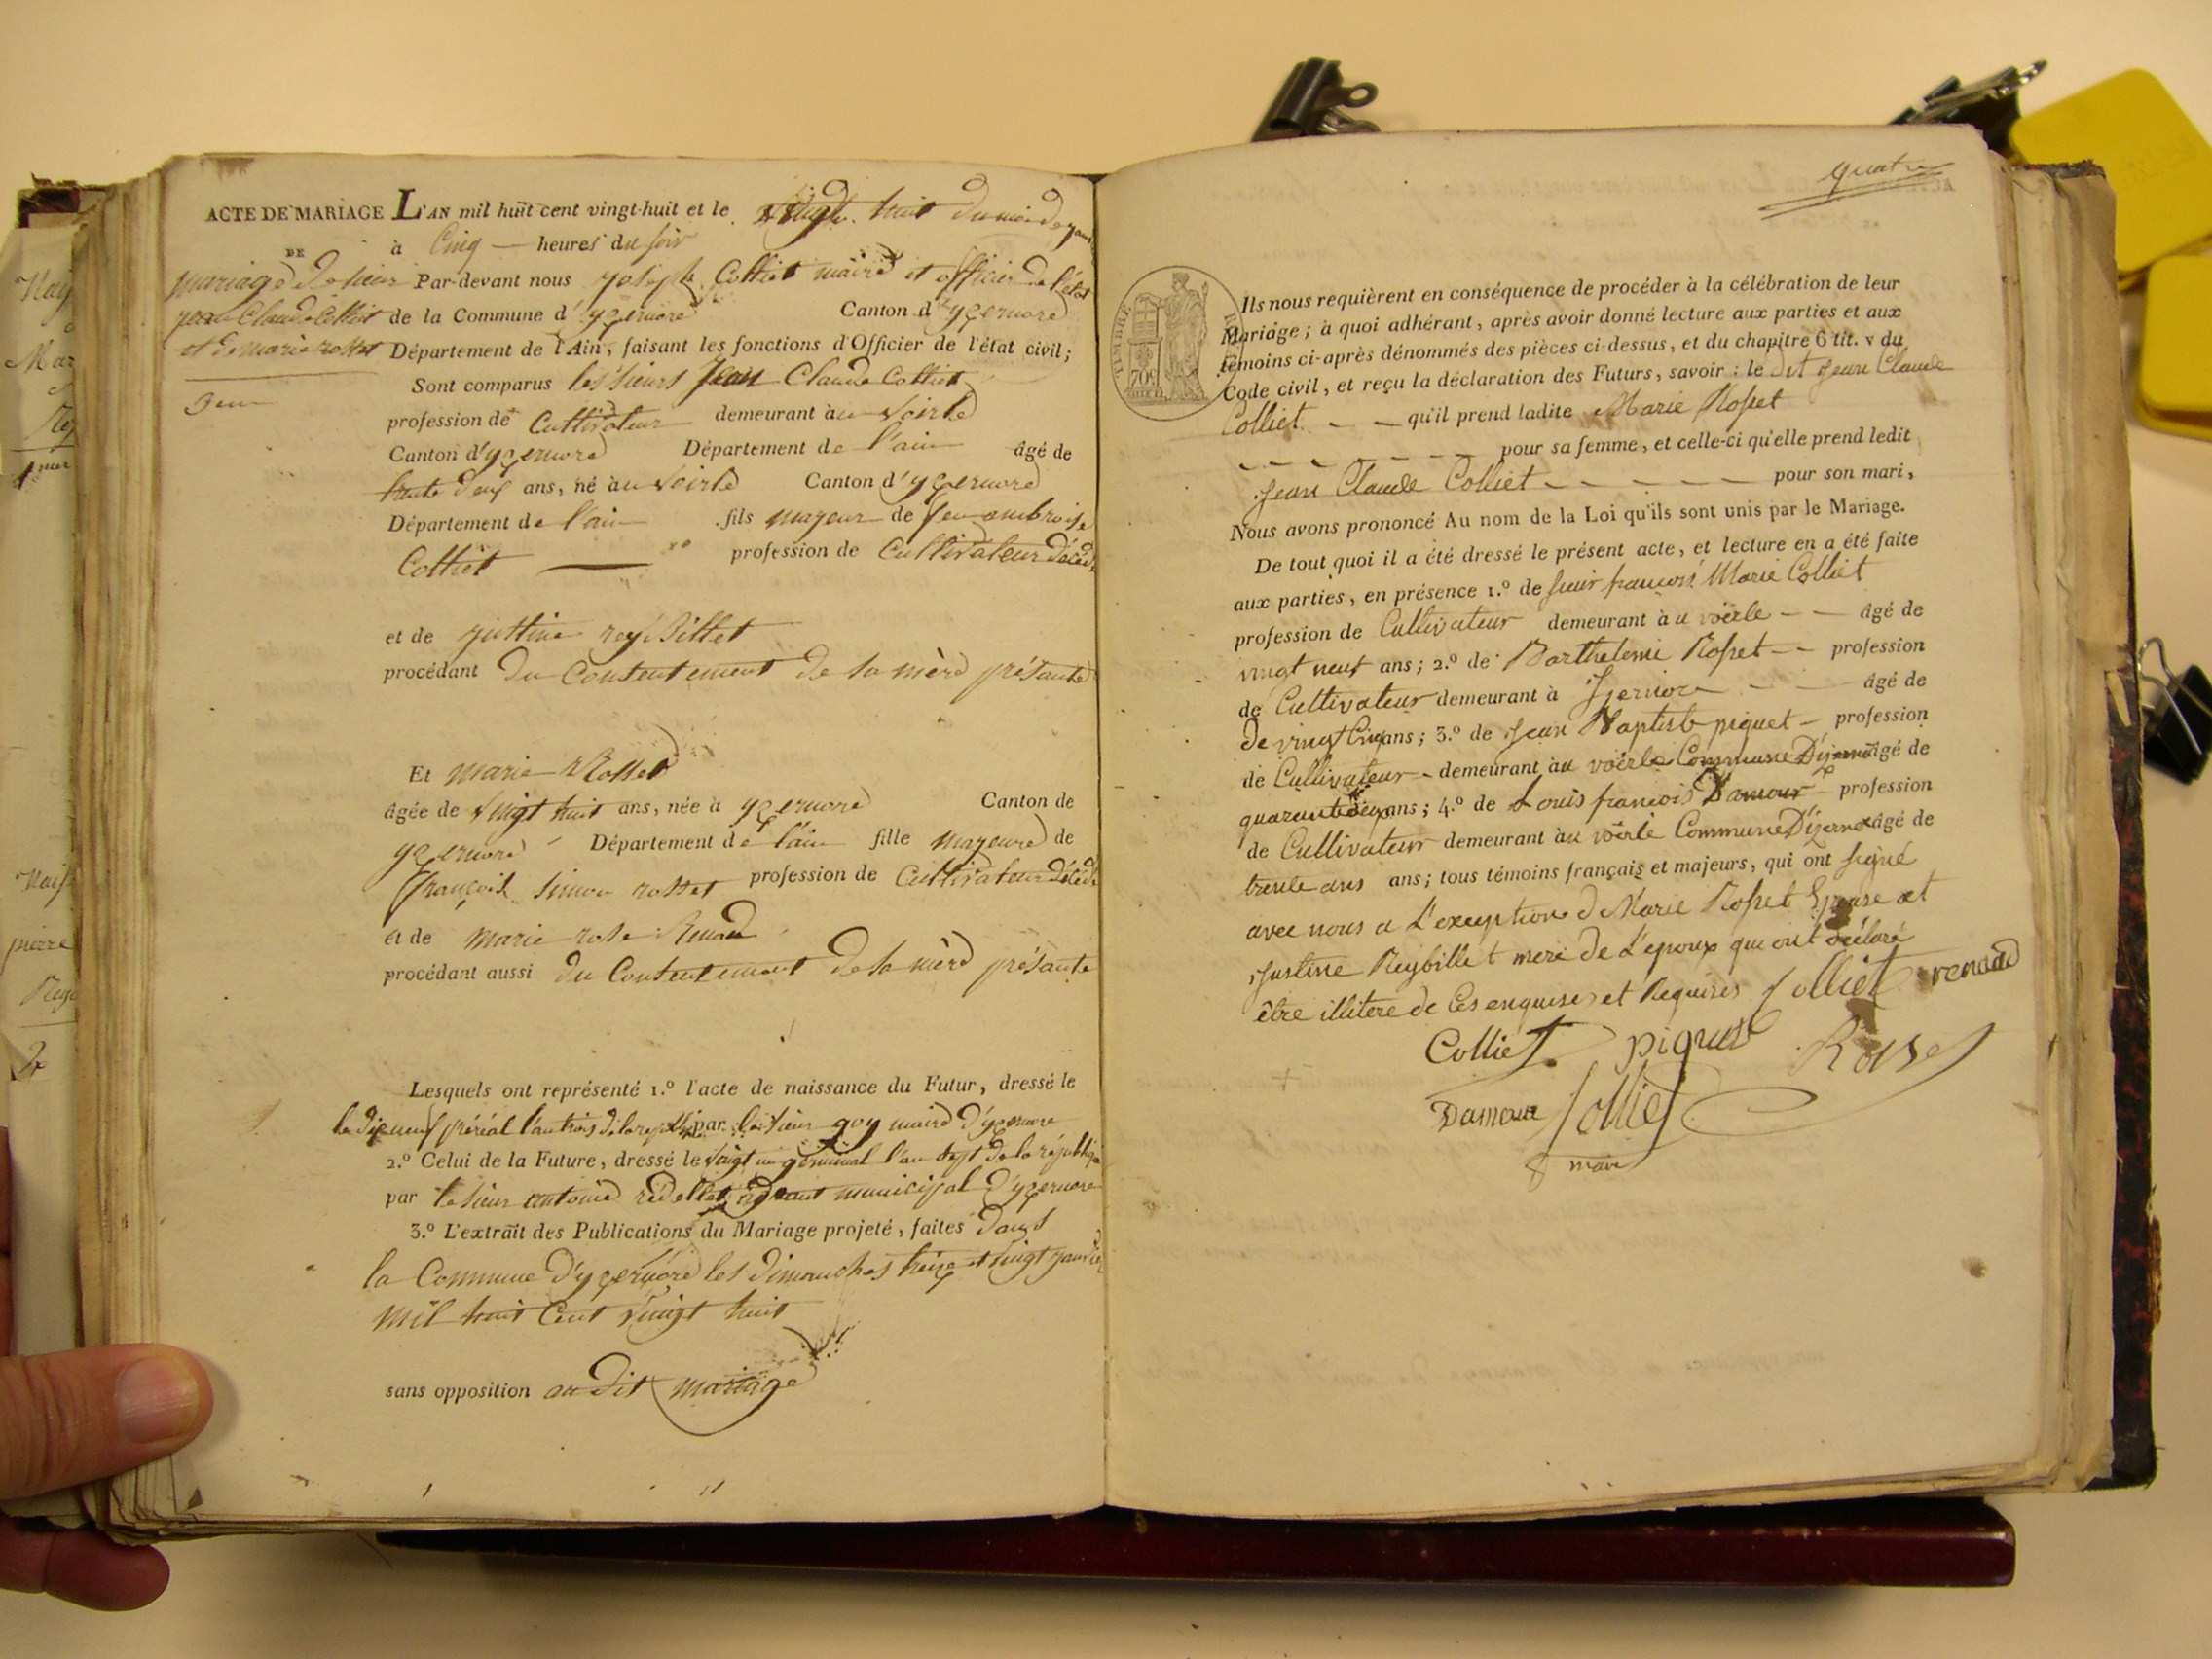 ACTE DE MARIAGE L'AN mil huit cent vingt-huit et le vingt huit du mois de janv
DE
à Cinq heures du soir
mariage de sieur
jean Claude Colliet
et de marie rosset
Par-devant nous joseph Colliet maire et officier de l'état
de la Commune d'yzernore Canton d'yzernore
Département de l'Ain, faisant les fonctions d'Officier de l'état civil;
Sont comparus les sieurs Jean Claude Colliet
profession de Cultivateur demeurant au Voirle
Canton d'yzernore Département de l'ain âgé de
trente deux ans, né au Voirle Canton d'yzernore
Département de l'ain fils majeur de feu ambroise
Colliet profession de Cultivateur décédé
et de justine rey Billet
procédant du Consentement de sa mère présante
Et marie Rosset
âgée de vingt huit ans, née à yzernore Canton de
yzernore Département de l'ain fille majeure de
françois simon rosset profession de Cultivateur décédé
et de marie rose Renad
procédant aussi du Consentement de sa mère présante
Lesquels ont représenté 1.º l'acte de naissance du Futur, dressé le
le dix neuf préréal l'an trois de la rep par le sieur goy maire d'yzernore
2.º Celui de la Future, dressé le vingt un germinal l'an sept de la républiq
par le sieur antoine redellet agent municipal d'yzernore
3.º L'extrait des Publications du Mariage projeté, faites dans
la Commune d'yzernore les dimanches treize et vingt janvier
mil huit Cent vingt huit
sans opposition au dit mariage
quatre
TIMBRE
70c
Ils nous requièrent en conséquence de procéder à la célébration de leur
Mariage; à quoi adhérant, après avoir donné lecture aux parties et aux
témoins ci-après dénommés des pièces ci-dessus, et du chapitre 6 tit. v du
Code civil, et reçu la déclaration des Futurs, savoir: le dit Jean Claude
Colliet - - qu'il prend ladite Marie Rosset
- - - - - - pour sa femme, et celle-ci qu'elle prend ledit
Jean Claude Colliet - - - - - pour son mari,
Nous avons prononcé Au nom de la Loi qu'ils sont unis par le Mariage.
De tout quoi il a été dressé le présent acte, et lecture en a été faite
aux parties, en présence 1.º de sieur francois Marie Colliet
profession de Cultivateur demeurant à u voirle - - âgé de
vingt neuf ans; 2.º de Barthelemi Rosset - - profession
de Cultivateur demeurant à Izernore - - âgé de
de vingt Cinq ans; 3.º de Jean Baptiste piquet - profession
de Cultivateur - demeurant àu voirle Commune D'izernore âgé de
quarante deux ans; 4.º de Louis francois Damour - profession
de Cultivateur demeurant àu voirle Commune D'izernore âgé de
trente ans ans; tous témoins français et majeurs, qui ont signé
avec nous a L'exception de Marie Rosset Epouse et
Justine Reybillet mere de L'epoux qui ont déclaré
être illitere de Ces enquises et Requises Colliet renad
Colliet piquet Roset
Damour Colliet
maire